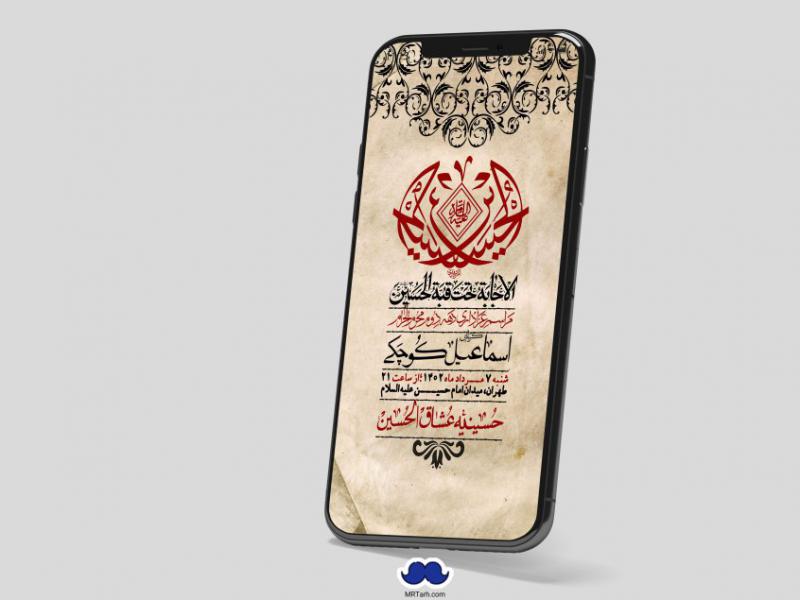 الحسین
علیه السلام
الحسین
الاجابة تحت قبة الحسین
مراسم عزاداری دهه دوم محرم الحرام
کربلایی
اسماعیل کوچکے
شنبه ۷ مرداد ماه ۱۴۰۲؛ از ساعت ۲۱
طهران، میدان امام حسین علیه السلام
حسینیه عشاق الحسین
MRTarh.com